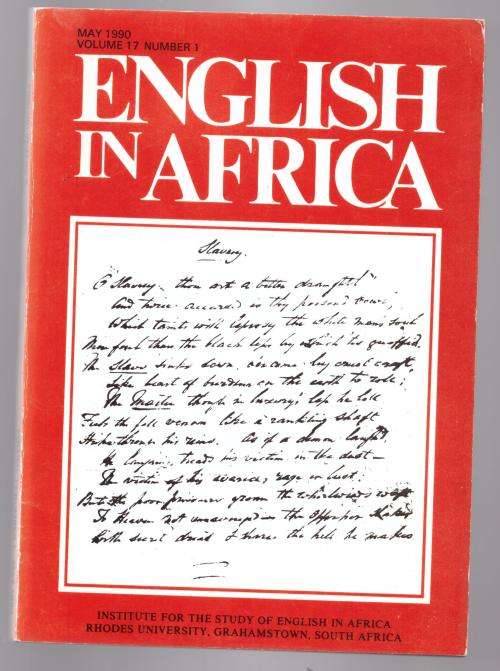 MAY 1990
VOLUME 17 NUMBER 1
ENGLISH
IN AFRICA
Slavery.
"O Slavery, thou art a bitter draught!"
And twice accursed is thy poisoned bowl,
Which taints with leprosy the white man's soul
More foul than the black lips by which 'tis quaffed.
The Slave sinks down, o'ercome by cruel craft,
Like beast of burden on the earth to roll;
The Master though in luxury's lap he loll
Feels the fell venom like a rankling shaft
Strike through his reins. As if a demon laugh'd,
He laughing, treads his victim in the dust—
The victim of his avarice, rage or lust;
But the poor prisoner's groan the whirlwinds waft
To Heaven not the Oppressor shakes
With secret dread & shares the hell he makes
INSTITUTE FOR THE STUDY OF ENGLISH IN AFRICA
RHODES UNIVERSITY, GRAHAMSTOWN, SOUTH AFRICA